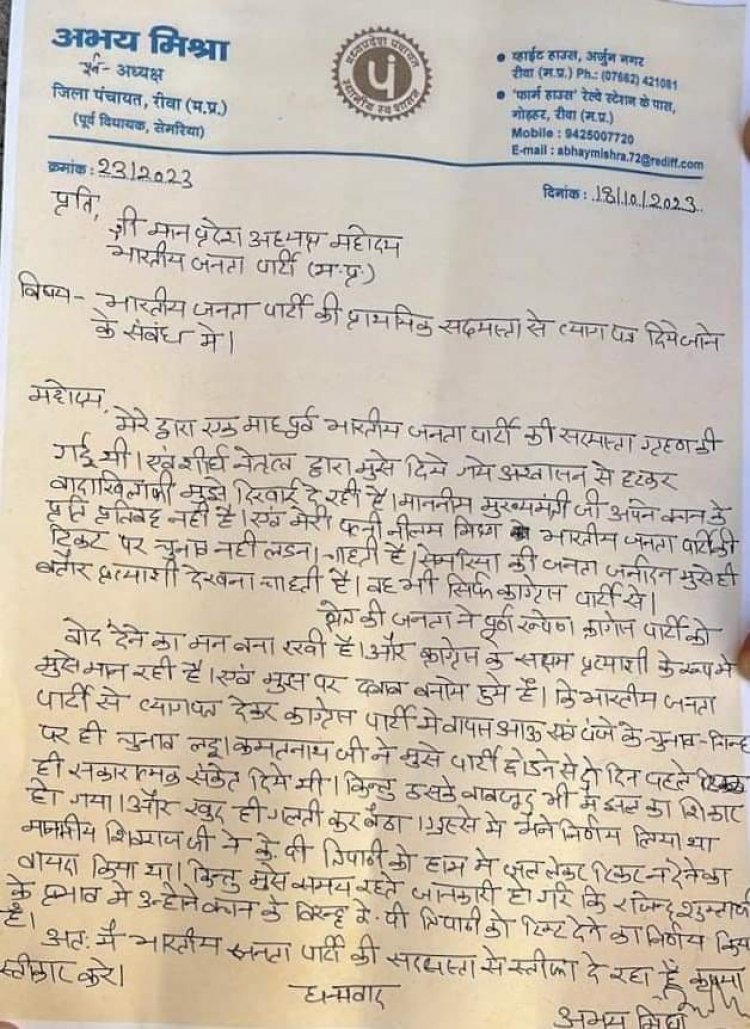 अभय मिश्रा
पूर्व- अध्यक्ष
जिला पंचायत, रीवा (म.प्र.)
(पूर्व विधायक, सेमरिया)
मध्यप्रदेश पंचायत
पं
स्थानीय स्व शासन
• व्हाईट हाउस, अर्जुन नगर
रीवा (म.प्र.) Ph.: (07662) 421081
• 'फार्म हाउस' रेल्वे स्टेशन के पास,
गोड़हर, रीवा (म.प्र.)
Mobile : 9425007720
E-mail : abhaymishra.72@rediff.com
क्रमांक : 23/2023
दिनांक : 18/10/2023
प्रति,
श्री मान प्रदेश अध्यक्ष महोदय
भारतीय जनता पार्टी (म.प्र.)
विषय- भारतीय जनता पार्टी की प्राथमिक सदस्यता से त्याग पत्र दिये जाने
के संबंध मे।
महोदय,
मेरे द्वारा एक माह पूर्व भारतीय जनता पार्टी की सदस्यता ग्रहण की
गई थी। एवं शीर्ष नेतृत्व द्वारा मुझे दिये गये आश्वासन से हटकर
वादाखिलाफी मुझे दिखाई दे रही है। माननीय मुख्यमंत्री जी अपने कथन के
प्रति प्रतिबद्ध नही है। एवं मेरी पत्नी नीलम मिश्रा भारतीय जनता पार्टी की
टिकट पर चुनाव नही लडना चाहती है। सेमरिया की जनता जनार्दन मुझे ही
बतौर प्रत्याशी देखना चाहती है। वह भी सिर्फ कांग्रेस पार्टी से।
क्षेत्र की जनता ने पूर्ण रूपेण कांग्रेस पार्टी को
वोट देने का मन बना रखी है। और कांग्रेस के सक्षम प्रत्याशी के रूप मे
मुझे मान रही है। एवं मुझ पर दबाव बनाये हुये है। कि भारतीय जनता
पार्टी से त्यागपत्र देकर कांग्रेस पार्टी मे वापस आऊ एवं पंजे के चुनाव-चिन्ह
पर ही चुनाव लडू। कमलनाथ जी ने मुझे पार्टी छोडने से दो दिन पहले
ही सकारात्मक संकेत दिये थी। किन्तु उसके बावजूद भी मै छल का शिकार
हो गया। और खुद ही गलती कर बैठा। गुस्से मे मैने निर्णय लिया था
माननीय शिवराज जी ने के.पी त्रिपाठी को हाथ मे जल लेकर टिकट न देने का
वायदा किया था। किन्तु मुझे समय रहते जानकारी हो गई कि राजेन्द्र शुक्ला जी
के प्रभाव मे उन्होने कथन के विरुद्ध के.पी त्रिपाठी को टिकट देने का निर्णय किया
है।
अतः मै भारतीय जनता पार्टी की सदस्यता से स्तीफा दे रहा हूँ कृपया
स्वीकार करे।
धन्यवाद
अभय मिश्रा